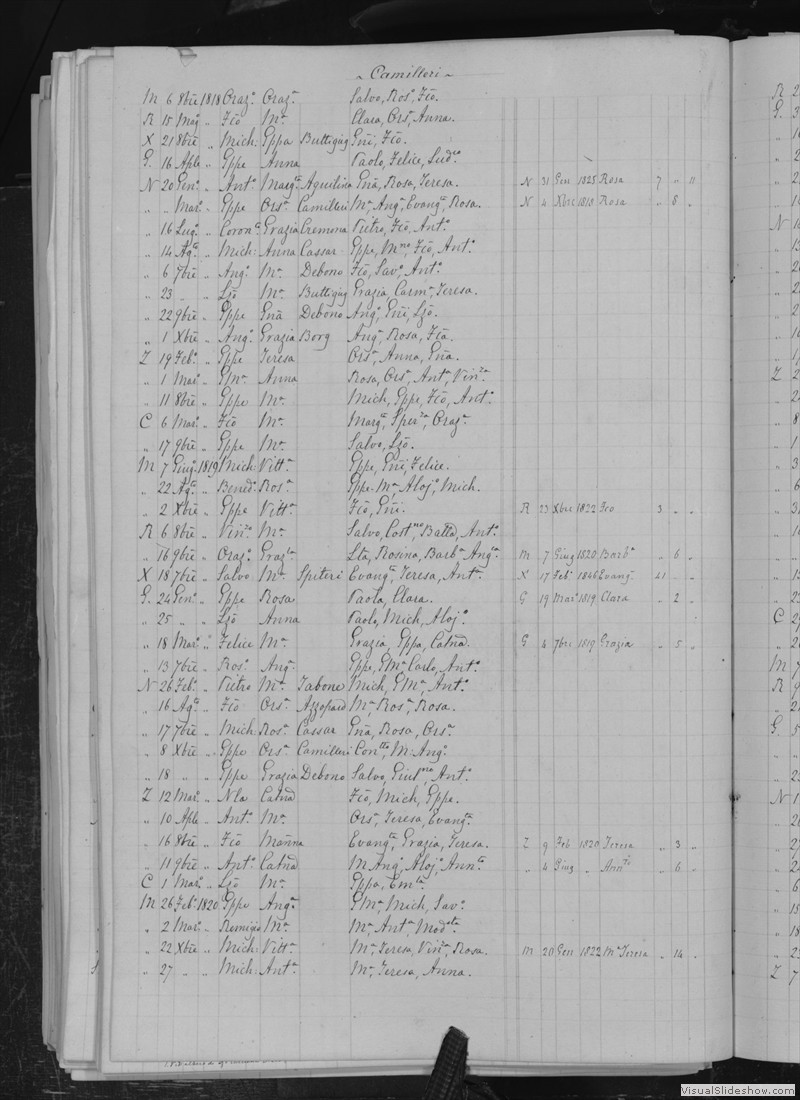 ~ Camilleri ~
M 6 8bre 1818 Oraz.o Oraz.a Salvo, Ros.o, Fco.
R 15 Mag. „ Fco M.a Clara, Ors.a, Anna.
X 21 8bre „ Mich: Gppa Buttigieg Gni, Fco.
G. 16 Aple „ Gppe Anna Paolo, Felice, Lud.co
N 20 Gen.o „ Ant.o Marg.ta Aquilina Gna, Rosa, Teresa. N 31 Gen 1825 Rosa 7 „ 11
„ „ Mar.o „ Gppe Ors.a Camilleri M.a Ang.a, Evang.ta, Rosa. N 4 Xbre 1818 Rosa „ 8 „
„ 16 Lug.o „ Coron.o Grazia Cremona Pietro, Fco, Ant.o
„ 14 Ag.o „ Mich: Anna Cassar Gppe, M.no, Fco, Ant.o
„ 6 7bre „ Ang.o M.a Debono Fco, Sav.o, Ant.o
„ 23 „ „ Lzo M.a Buttigieg Grazia, Carm.a, Teresa.
„ 22 9bre „ Gppe Gna Debono Ang.o, Gni, Lzo.
„ 1 Xbre „ Ang.o Grazia Borg Ang.a, Rosa, Fca.
Z 19 Feb.o „ Gppe Teresa Ors.a, Anna, Gna.
„ 1 Mar.o „ GM.a Anna Rosa, Ors.a, Ant.a, Vin.za
„ 11 8bre „ Gppe M.a Mich, Gppe, Fco, Ant.o
C 6 Mar.o „ Fco M.a Marg.ta, Sper.za, Oraz.a
„ 17 9bre „ Gppe M.a Salvo, Lzo.
M 7 Giug.o 1819 Mich: Vitt.a Gppe, Gni, Felice.
„ 22 Ag.o „ Bened: Ros.a Gppe M.a, Aloj.o, Mich.
„ 2 Xbre „ Gppe Vitt.a Fco, Gni. R 23 Xbre 1822 Fco 3 „ „
R 6 8bre „ Vin.zo M.a Salvo, Cost.no, Batta, Ant.o
„ 16 9bre „ Oraz.o Graz.la Lta, Rosina, Barb.a Ang.ca M 7 Giug 1820 Barb.a „ 6 „
X 18 7bre „ Salvo M.a Spiteri Evang.ta, Teresa, Ant.a X 17 Feb.o 1846 Evang. 41 „ „
G. 24 Gen.o „ Gppe Rosa Paola, Clara. G 19 Mar.o 1819 Clara „ 2 „
„ 25 „ „ Lzo Anna Paolo, Mich, Aloj.o
„ 18 Mar.o „ Felice M.a Grazia, Gppa, Catna. G 4 7bre 1819 Grazia „ 5 „
„ 13 7bre „ Ros.o Ang.a Gppe, GM.a Carlo, Ant.o
N 26 Feb.o „ Pietro M.a Tabone Mich, GM.a, Ant.o
„ 16 Ag.o „ Fco Ors.a Azzopard M.a, Ros.a, Rosa.
„ 17 7bre „ Mich: Ros.a Cassar Gna, Rosa, Ors.a
„ 8 Xbre „ Gppe Ors.a Camilleri Con.tta, M.a Ang.a
„ 18 „ „ Gppe Grazia Debono Salvo, Giul.no, Ant.o
Z 12 Mar.o „ Nla Catna Fco, Mich, Gppe.
„ 10 Aple „ Ant.o M.a Ors.a, Teresa, Evang.ta
„ 16 8bre „ Fco Manna Evang.ta, Grazia, Teresa. Z 9 Feb 1820 Teresa „ 3 „
„ 11 9bre „ Ant.o Catna M Ang.a, Aloj.a, Ann.ta „ 4 Giug „ Ann.ta „ 6 „
C 1 Mar.o „ Lzo M.a Gppa, Em.la
M 26 Feb.o 1820 Gppe Ang.a GM.a, Mich, Sav.o
„ 2 Mar.o „ Remigio M.a M.a Ant.a Mod.sta
„ 22 Xbre „ Mich: Vitt.a M.a, Teresa, Vin.za, Rosa. M 20 Gen 1822 M.a Teresa „ 14 „
„ 27 „ „ Mich: Ant.a M.a, Teresa, Anna.
VisualSlideshow.com